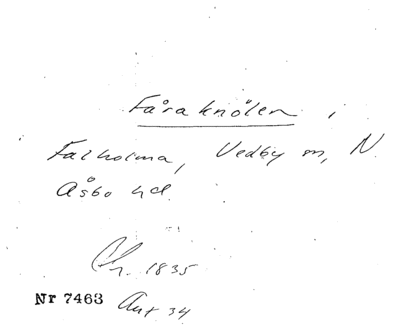 Fåraknölen i
Falholma, Vedby sn, N.
Åsbo hd.
Chr. 1835
Nr 7463 Ant 34